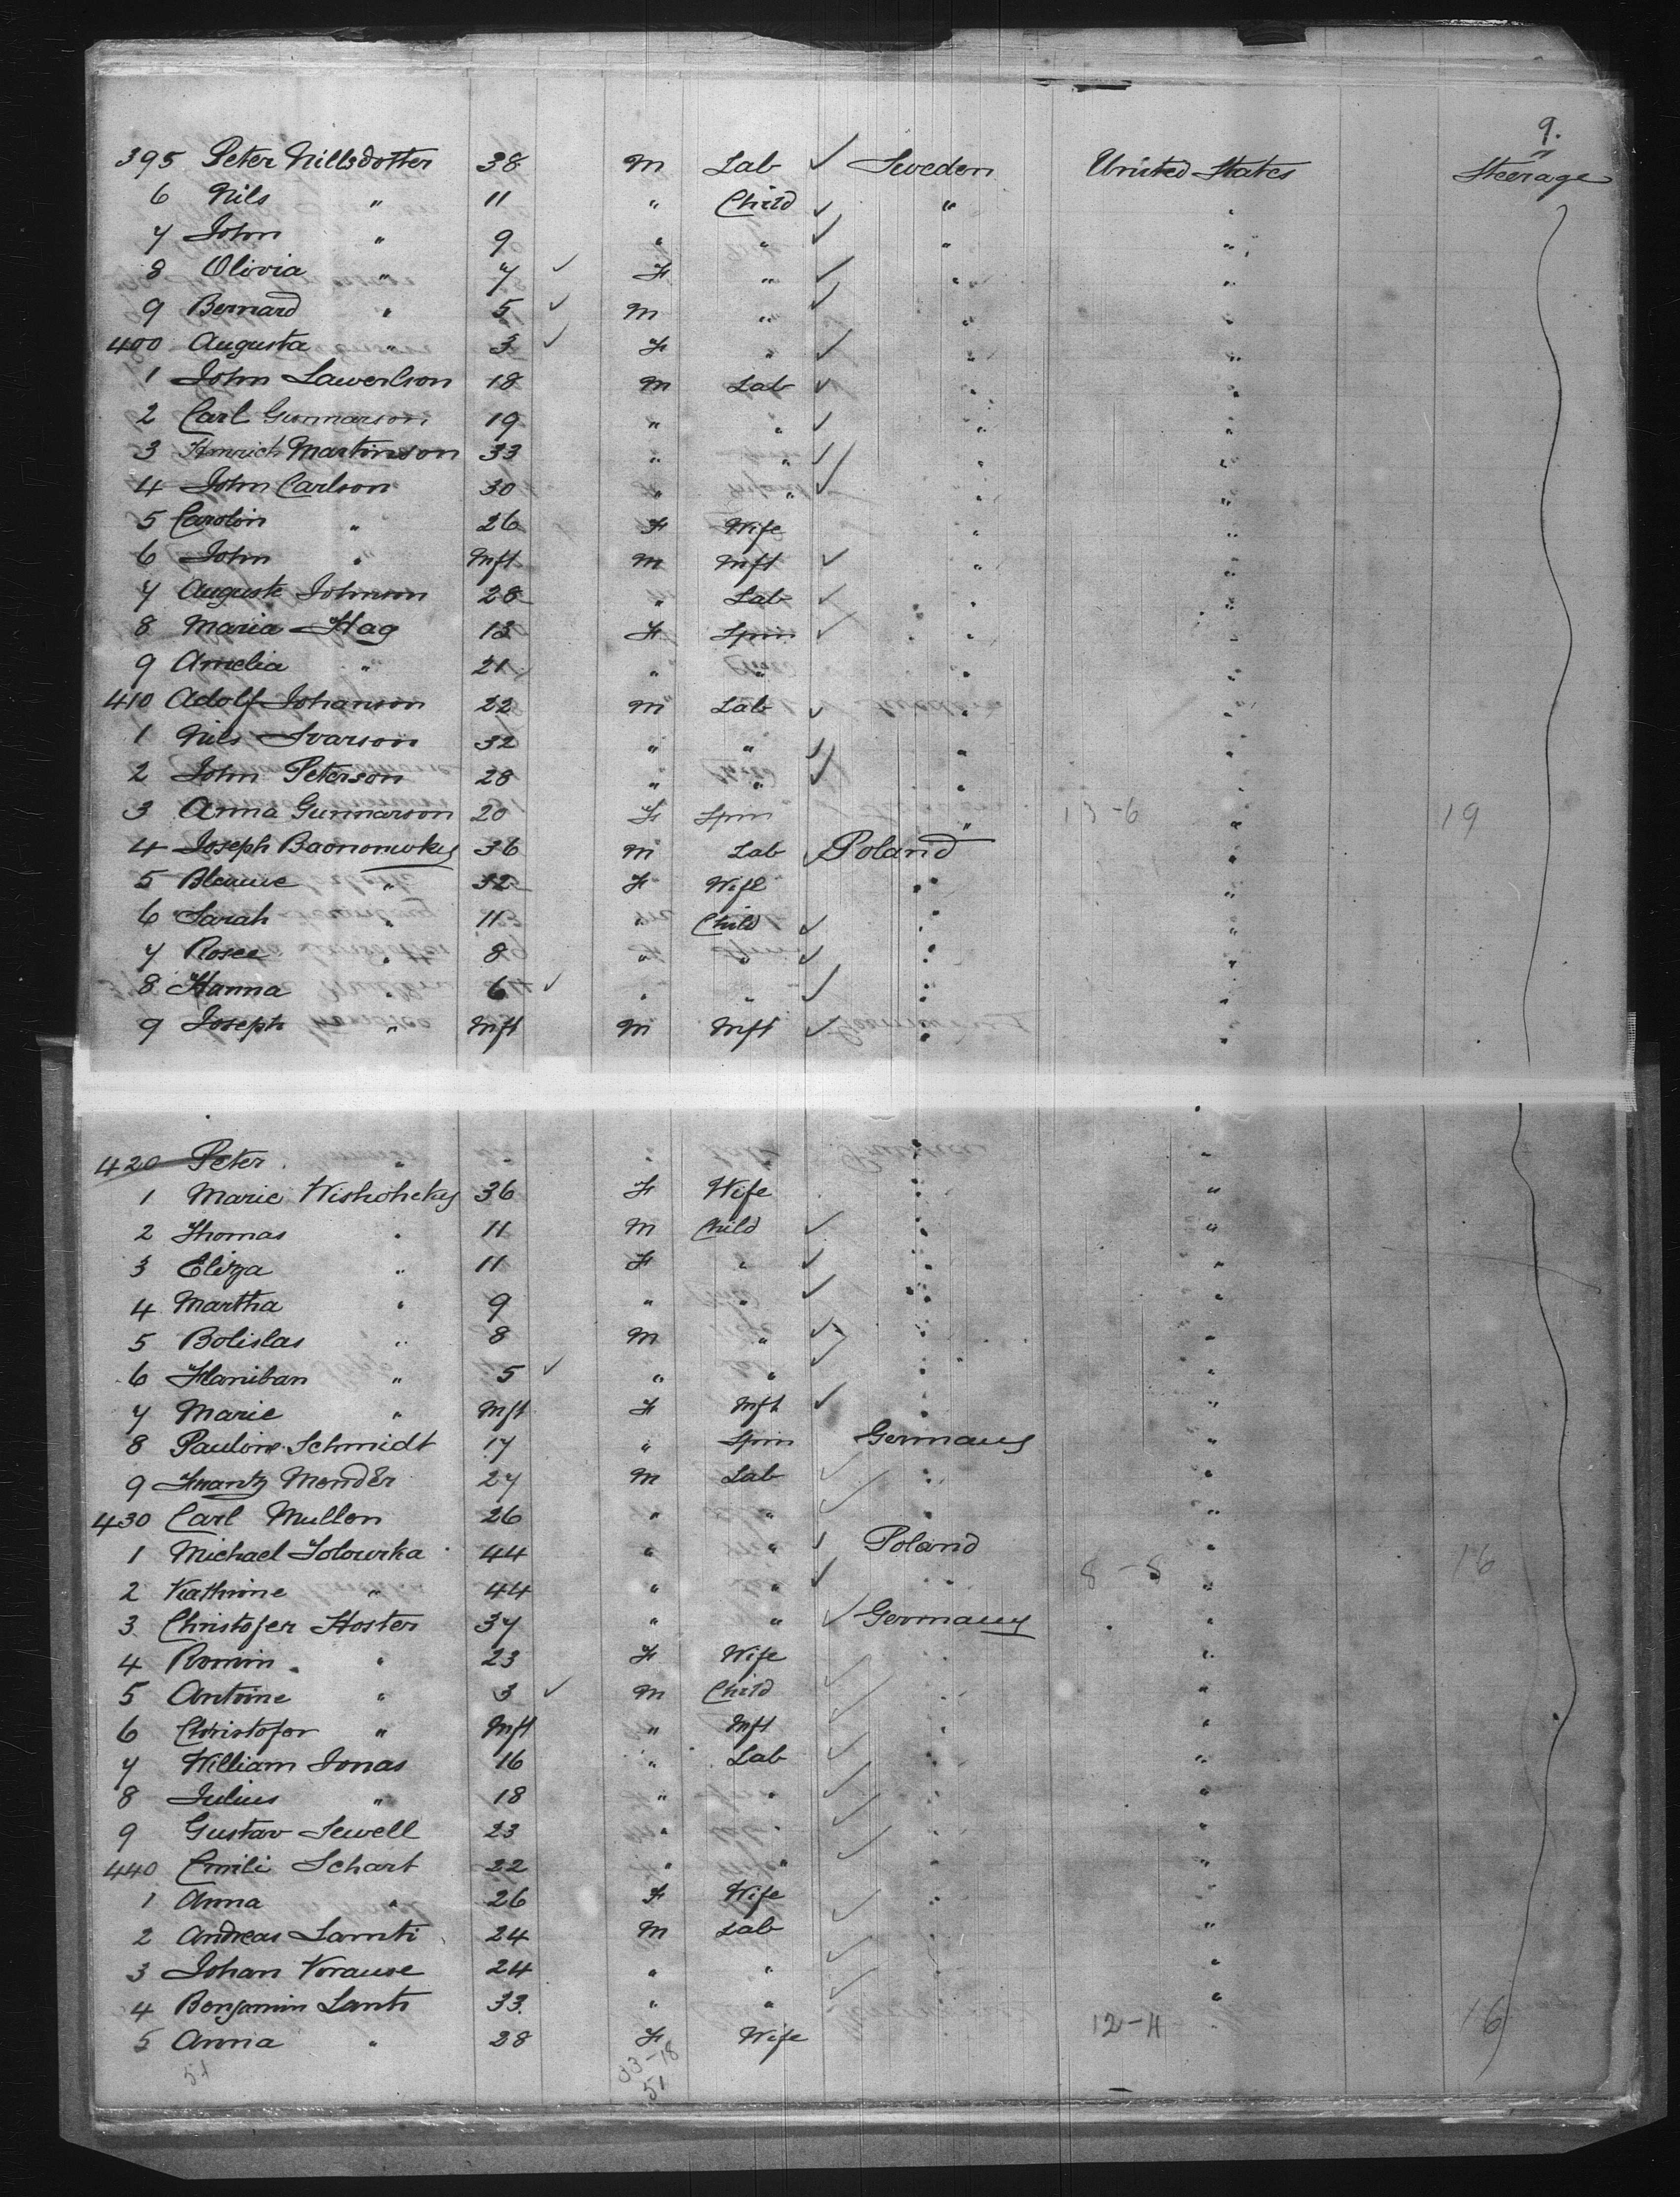 9.
395 Peter Nillsdotter 38 M Lab ✓ Sweden United States Steerage
6 Nils " 11 " Child ✓ " "
7 John " 9 " " ✓ " "
8 Olivia " 7 ✓ F " ✓ " "
9 Bernard " 5 ✓ M " ✓ " "
400 Augusta " 3 ✓ F " ✓ " "
1 John Lawerlson 18 M Lab ✓ " "
2 Carl Gunnarson 19 " " ✓ " "
3 Hinrich Martinson 33 " " ✓ " "
4 John Carlson 30 " " ✓ " "
5 Carolin " 26 F Wife " "
6 John " Inft M Inft ✓ " "
7 Auguste Johnson 28 " Lab ✓ " "
8 Maria Hag 13 F Spin ✓ " "
9 Amelia " 21 " " " "
410 Adolf Johanson 22 M Lab ✓ " "
1 Nils Ivarson 32 " " ✓ " "
2 John Peterson 28 " " ✓ " "
3 Anna Gunnarson 20 F Spin " 13-6 " 19
4 Joseph 36 M Lab ✓ Poland "
5 " 32 F Wife " "
6 Sarah " 11 " Child ✓ " "
7 Rosee " 8 " " ✓ " "
8 Hanna " 6 ✓ " " ✓ " "
9 Joseph " Inft M Inft ✓ " "
420 Peter " " " "
1 Marie Wishohcky 36 F Wife " "
2 Thomas " 11 M Child ✓ " "
3 Eliza " 11 F " ✓ " "
4 Martha " 9 " " ✓ " "
5 Bolislas " 8 M " ✓ " "
6 " 5 ✓ " " ✓ " "
7 Marie " Inft F Inft ✓ " "
8 Pauline Schmidt 17 " Spin Germany "
9 Frantz Mender 27 M Lab ✓ " "
430 Carl Mullen 26 " " ✓ " "
1 Michael Solowrka 44 " " ✓ Poland "
2 Kathrine " 44 " " ✓ " 8-8 " 16
3 Christofer Hoster 37 " " ✓ Germany "
4 Romin " 23 F Wife "
5 Antoine " 3 ✓ M Child ✓ " "
6 Christofer " Inft " Inft ✓ " "
7 William Jonas 16 " Lab ✓ " "
8 Julius " 18 " " ✓ " "
9 Gustav Sewell 23 " " ✓ " "
440 Emili Schart 22 " " ✓ " "
1 Anna " 26 F Wife " "
2 Andreas Lamti 24 M Lab ✓ " "
3 Johan Krause 24 " " ✓ " "
4 Benjamin Lanti 33 " " ✓ "
5 Anna " 28 F Wife 12-4 16
51 33-18
51